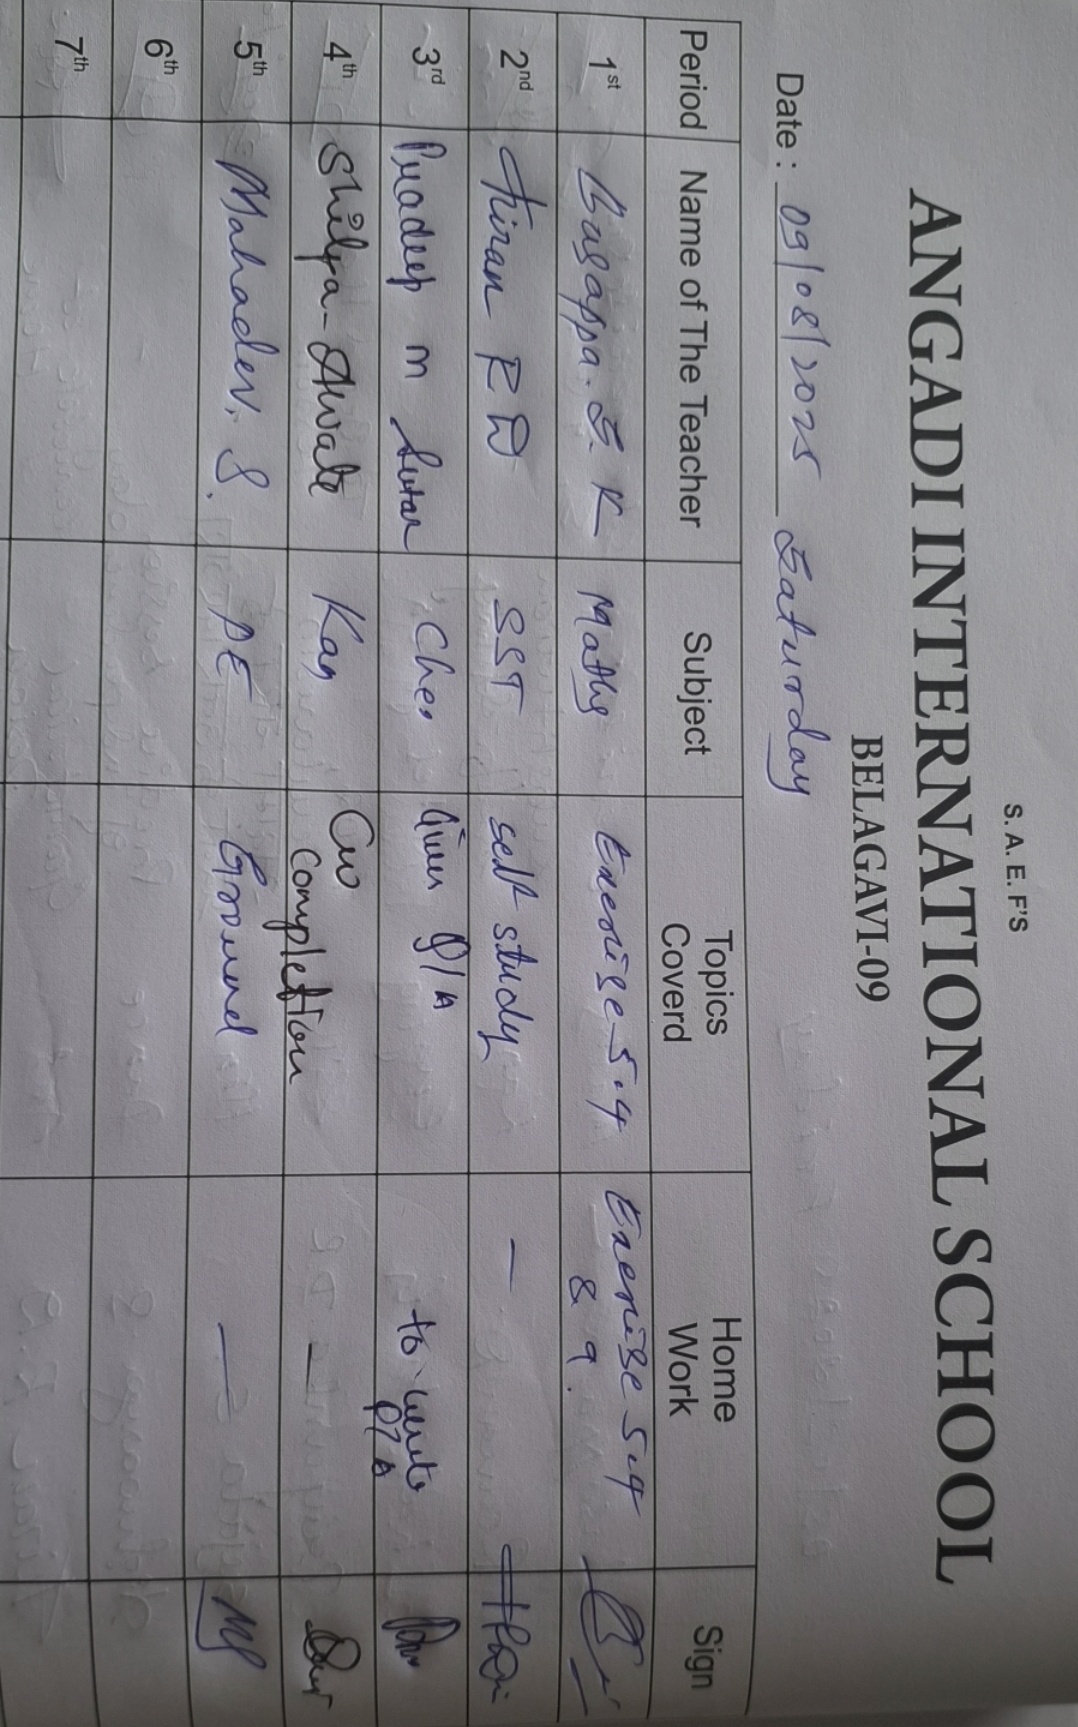 S. A. E. F'S
ANGADI INTERNATIONAL SCHOOL
BELAGAVI-09
Date : 09/08/2025 Saturday
Period Name of The Teacher Subject Topics Coverd Home Work Sign
1st Basappa. S. K Maths Exercise 5.4 Exercise 5.4 & 9.
2nd Kiran R D SST self study —
3rd Pradeep m Sutar Che. Given Q/A to write Q/A
4th Shilpa Awale Kan CW completion —
5th Mahadev. S. PE Ground —
6th
7th